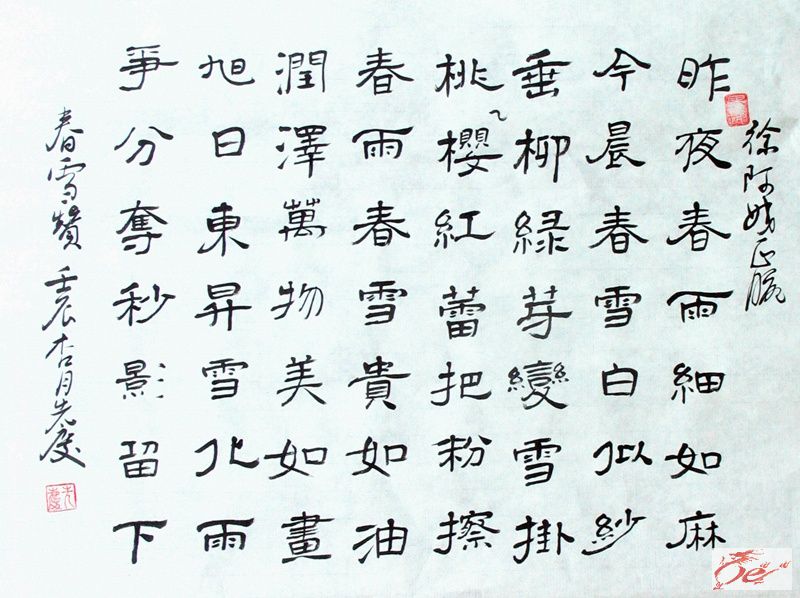 徐阿姨正腕
昨夜春雨細如麻
今晨春雪白似紗
垂柳綠芽變雪掛
桃櫻紅蕾把粉擦
春雨春雪貴如油
潤澤萬物美如畫
旭日東昇雪化雨
爭分奪秒影留下
春雪贊 壬辰杏月先慶